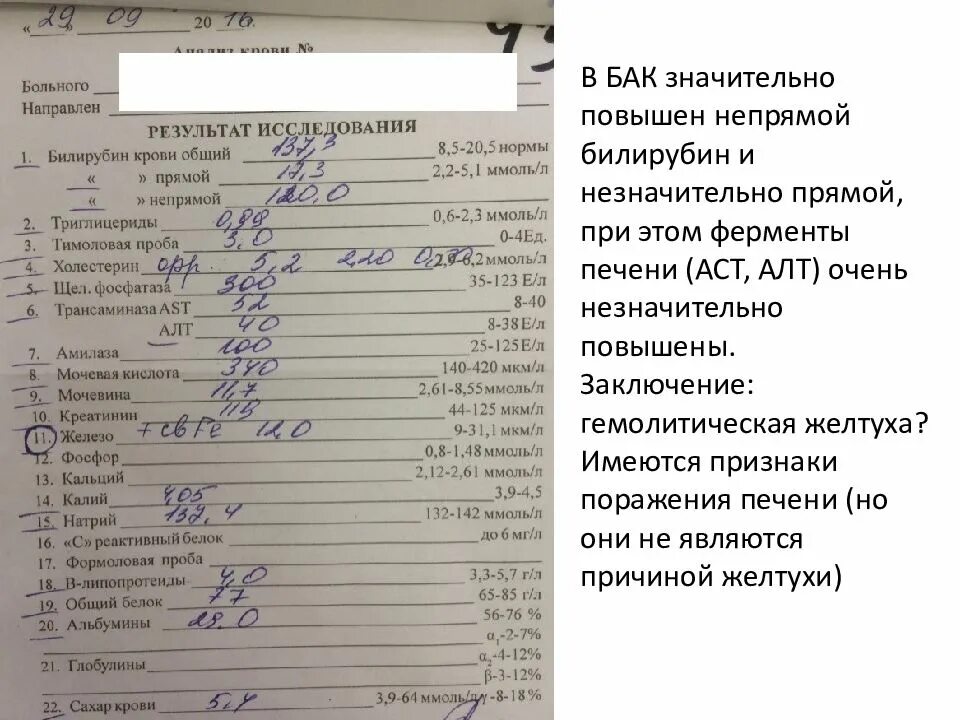 « 29 » 09 20 16 г.
Анализ крови №
Больного
Направлен
РЕЗУЛЬТАТ ИССЛЕДОВАНИЯ
1. Билирубин крови общий 137,3 8,5-20,5 нормы
« » прямой 17,3 2,2-5,1 ммоль/л
« » непрямой 120,0
2. Триглицериды 0,99 0,6-2,3 ммоль/л
3. Тимоловая проба 3,0 0-4Ед.
4. Холестерин 5,2 ммоль/л
5. Щел. фосфатаза 300 35-123 Е/л
6. Трансаминаза AST 52 8-40
АЛТ 40 8-38 Е/л
7. Амилаза 100 25-125Е/л
8. Мочевая кислота 340 140-420 мкм/л
9. Мочевина 11,7 2,61-8,55 ммоль/л
10. Креатинин 44-125 мкм/л
11. Железо 9-31,1 мкм/л
12. Фосфор 0,8-1,48 ммоль/л
13. Кальций 2,12-2,61 ммоль/л
14. Калий 4,05 3,9-4,5
15. Натрий 137,4 132-142 ммоль/л
16. «С» реактивный белок до 6 мг/л
17. Формоловая проба
18. В-липопротеиды 4,0 3,3-5,7 г/л
19. Общий белок 77 65-85 г/л
20. Альбумины 29,0 56-76 %
α1-2-7%
21. Глобулины α2-4-12%
β-3-12%
22. Сахар крови 5,4 3,9-64 ммоль/л γ-8-18 %
В БАК значительно
повышен непрямой
билирубин и
незначительно прямой,
при этом ферменты
печени (АСТ, АЛТ) очень
незначительно
повышены.
Заключение:
гемолитическая желтуха?
Имеются признаки
поражения печени (но
они не являются
причиной желтухи)